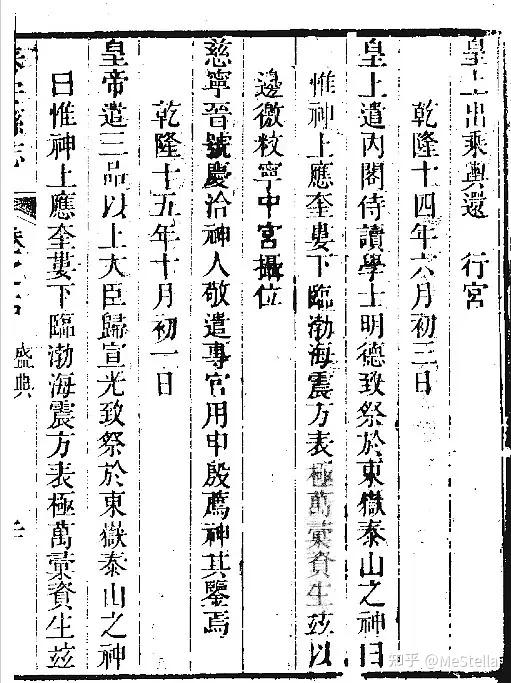 皇上出乘輿還　行宮
乾隆十四年六月初三日
皇上遣内閣侍讀學士明德致祭於東嶽泰山之神曰
惟神上應奎婁下臨渤海震方表極萬彙資生兹以
邊徼敉寧中宮攝位
慈寧晉號慶洽神人敬遣專官用申殷薦神其鑒焉
乾隆十五年十月初一日
皇帝遣三品以上大臣歸宣光致祭於東嶽泰山之神
曰惟神上應奎婁下臨渤海震方表極萬彙資生兹
泰安縣志
盛典
知乎 @MeStella